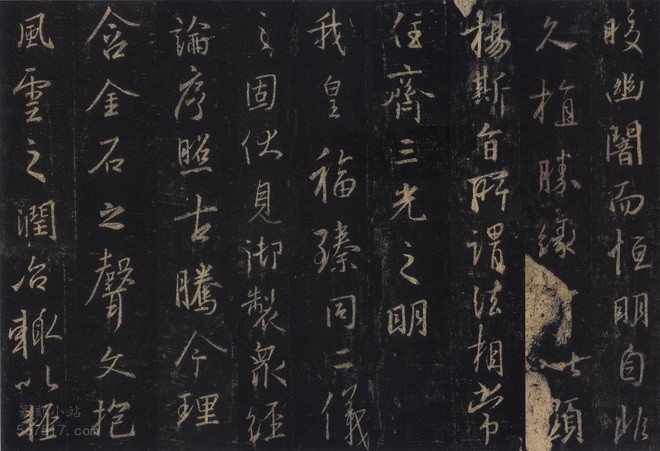 皎幽闇而恒明自非
久植勝緣何以顯
揚斯旨所謂法相常
住齊三光之明
我皇福臻同二儀
之固伏見御製眾經
論序照古騰今理
含金石之聲文抱
風雲之潤治輒以輕
小站